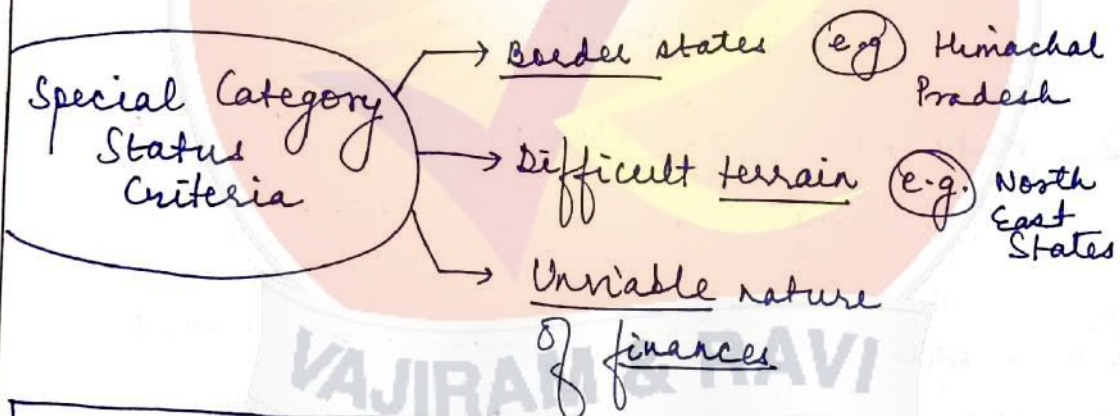 Special Category
Status
Criteria
Border states e.g Himachal
Pradesh
Difficult terrain e.g. North
East
States
Unviable nature
of finances
VAJIRAM & RAVI